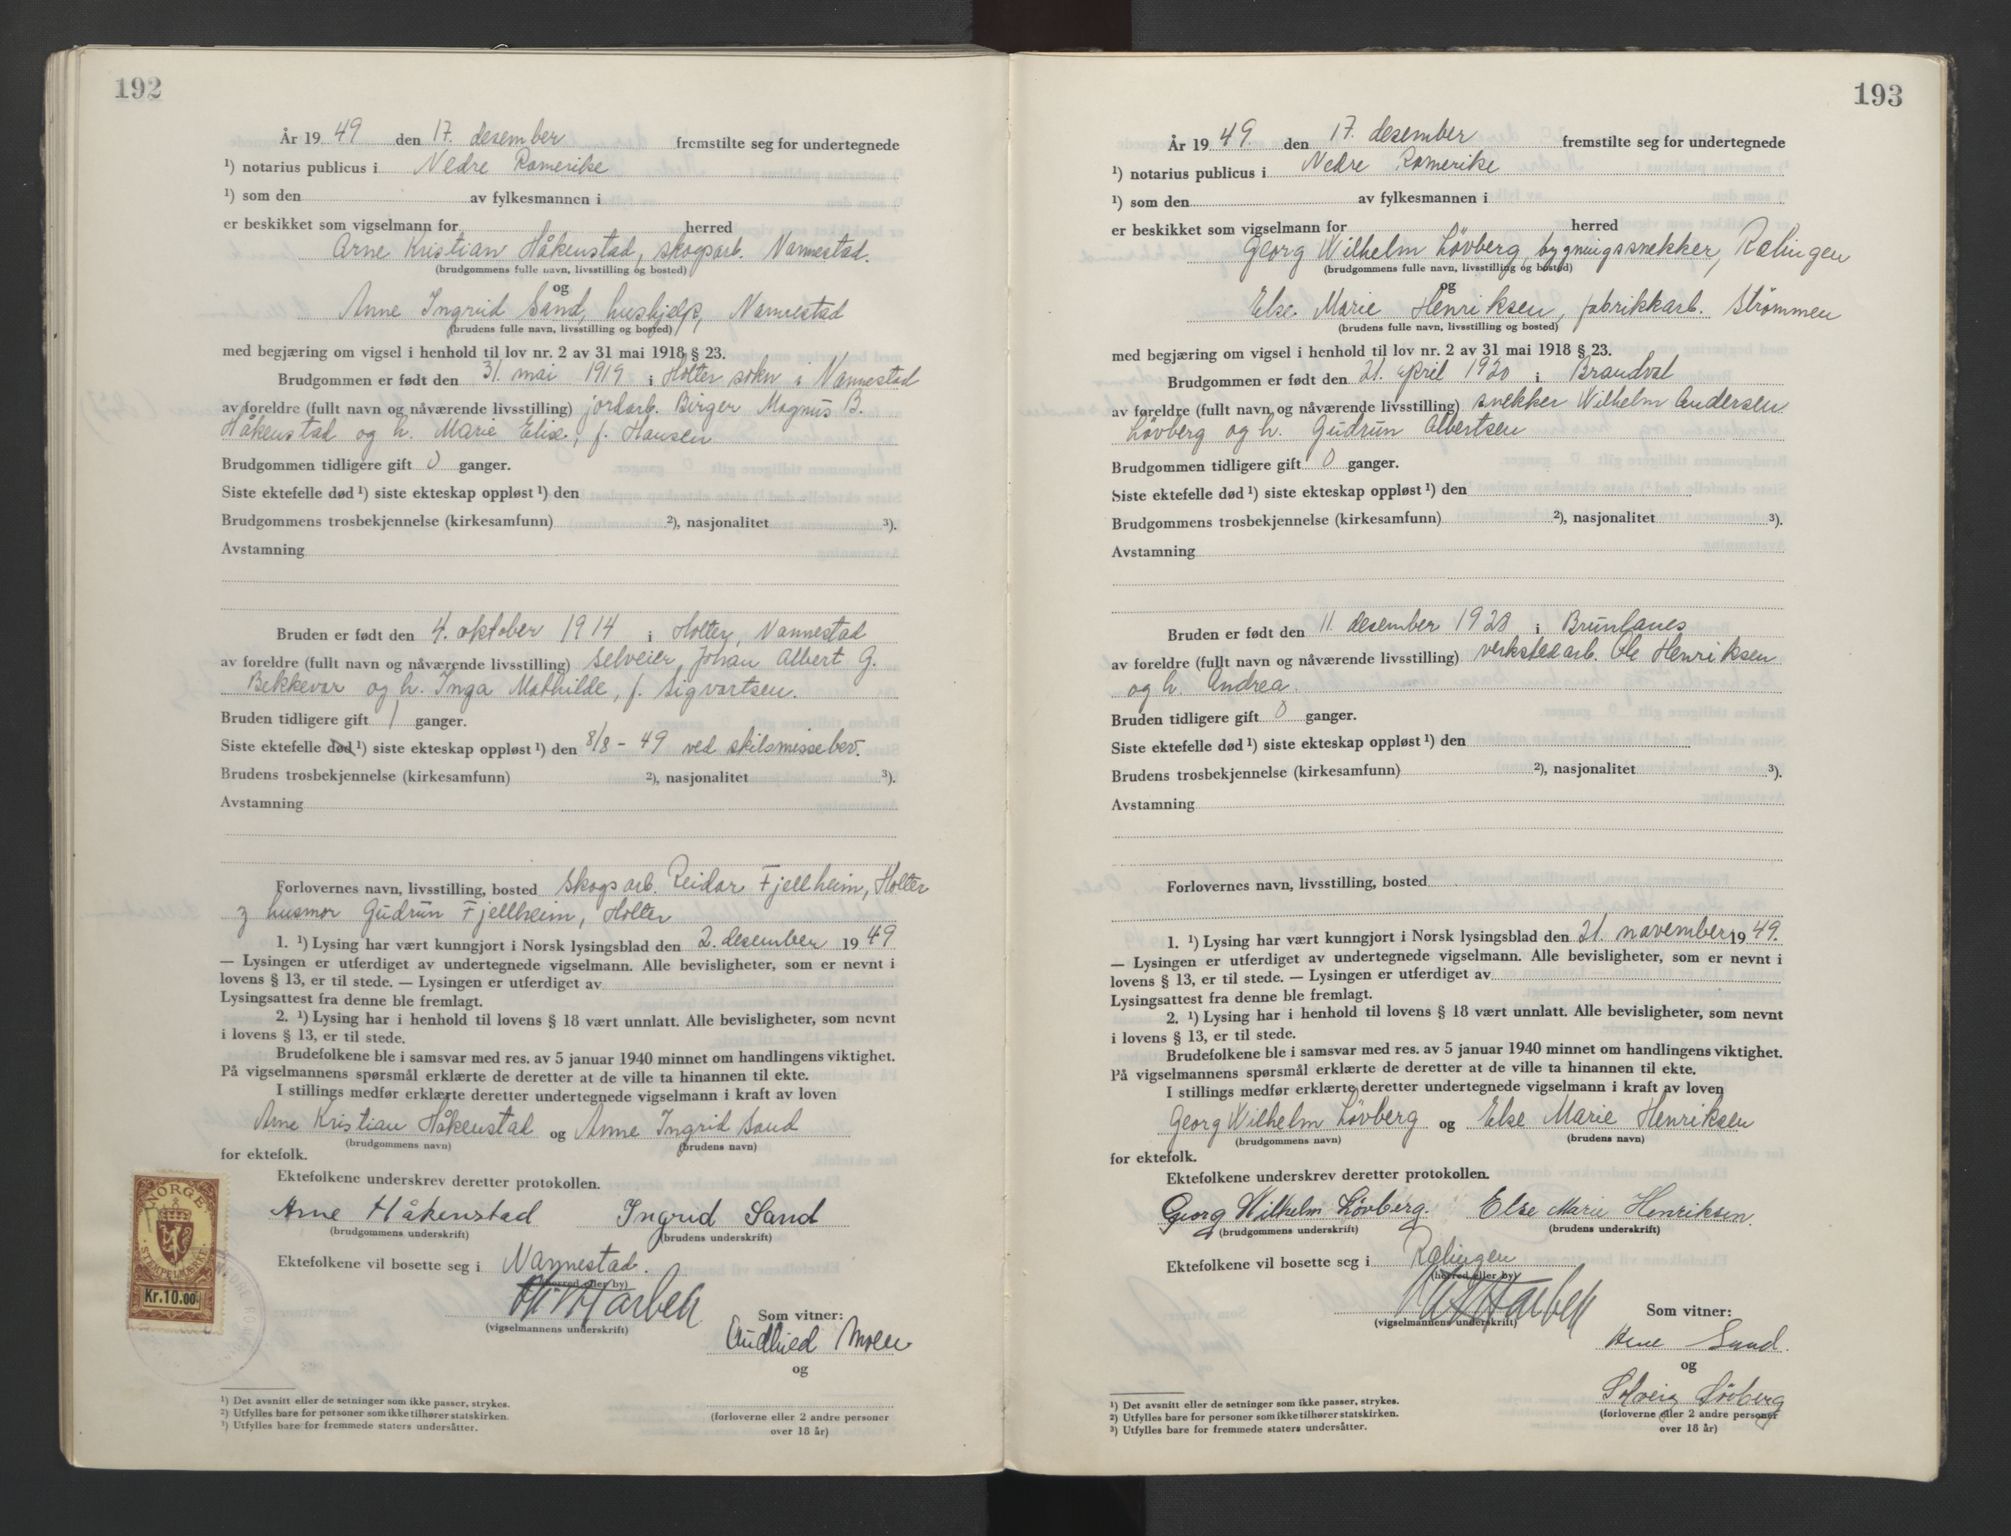 192
År 19 49 den 17. desember fremstilte seg for undertegnede
¹) notarius publicus i Nedre Romerike
¹) som den av fylkesmannen i
er beskikket som vigselmann for herred
Arne Kristian Håkenstad, skogsarb. Nannestad.
(brudgommens fulle navn, livsstilling og bosted)
og
Anne Ingrid Sand, hushjelp, Nannestad
(brudens fulle navn, livsstilling og bosted)
med begjæring om vigsel i henhold til lov nr. 2 av 31 mai 1918 § 23.
Brudgommen er født den 31. mai 1919 i Holter sokn i Nannestad
av foreldre (fullt navn og nåværende livsstilling) jordarb. Birger Magnus B.
Håkenstad og h. Marie Elise, f. Hansen
Brudgommen tidligere gift 0 ganger.
Siste ektefelle død ¹) siste ekteskap oppløst ¹) den
Brudgommens trosbekjennelse (kirkesamfunn) ²), nasjonalitet ³).
Avstamning
Bruden er født den 4. oktober 1914 i Holter, Nannestad
av foreldre (fullt navn og nåværende livsstilling) selveier, Johan Albert G.
Bekkevar og h. Inga Mathilde, f. Sigvartsen.
Bruden tidligere gift 1 ganger.
Siste ektefelle død ¹) siste ekteskap oppløst ¹) den 8/8 - 49 ved skilsmissebev.
Brudens trosbekjennelse (kirkesamfunn) ²), nasjonalitet ³).
Avstamning
Forlovernes navn, livsstilling, bosted skogsarb. Reidar Fjellheim, Holter
husmor Gudrun Fjellheim, Holter
1. ¹) Lysing har vært kunngjort i Norsk lysingsblad den 2. desember 19 49
— Lysingen er utferdiget av undertegnede vigselmann. Alle bevisligheter, som er nevnt i
lovens § 13, er til stede. — Lysingen er utferdiget av
Lysingsattest fra denne ble fremlagt.
2. ¹) Lysing har i henhold til lovens § 18 vært unnlatt. Alle bevisligheter, som nevnt
i lovens § 13, er til stede.
Brudefolkene ble i samsvar med res. av 5 januar 1940 minnet om handlingens viktighet.
På vigselmannens spørsmål erklærte de deretter at de ville ta hinannen til ekte.
I stillings medfør erklærte deretter undertegnede vigselmann i kraft av loven
Arne Kristian Håkenstad og Anne Ingrid Sand
(brudgommens navn) (brudens navn)
for ektefolk.
Ektefolkene underskrev deretter protokollen.
Arne Håkenstad Ingrid Sand
(brudgommens underskrift) (brudens underskrift)
Ektefolkene vil bosette seg i Nannestad.
(herred eller by)
(vigselmannens underskrift)
Som vitner:
Audhild Moen
og
(forloverne eller 2 andre personer
over 18 år)
NORGE
STEMPELMERKE
Kr.10.00
¹) Det avsnitt eller de setninger som ikke passer, strykes.
²) Utfylles bare for personer som ikke tilhører statskirken.
³) Utfylles bare for fremmede staters undersåtter.
193
År 19 49. den 17. desember fremstilte seg for undertegnede
¹) notarius publicus i Nedre Romerike
¹) som den av fylkesmannen i
er beskikket som vigselmann for herred
Georg Wilhelm Løvberg bygningssnekker, Rælingen
(brudgommens fulle navn, livsstilling og bosted)
og
Else Marie Henriksen, fabrikkarb. Strømmen
(brudens fulle navn, livsstilling og bosted)
med begjæring om vigsel i henhold til lov nr. 2 av 31 mai 1918 § 23.
Brudgommen er født den 21. april 1920 i Brandval
av foreldre (fullt navn og nåværende livsstilling) snekker Wilhelm Andersen
Løvberg og h. Gudrun Albertsen
Brudgommen tidligere gift 0 ganger.
Siste ektefelle død ¹) siste ekteskap oppløst ¹) den
Brudgommens trosbekjennelse (kirkesamfunn) ²), nasjonalitet ³).
Avstamning
Bruden er født den 11. desember 1928 i Brunlanes
av foreldre (fullt navn og nåværende livsstilling) verkstedarb. Ole Henriksen
og h. Andrea.
Bruden tidligere gift 0 ganger.
Siste ektefelle død ¹) siste ekteskap oppløst ¹) den
Brudens trosbekjennelse (kirkesamfunn) ²), nasjonalitet ³).
Avstamning
Forlovernes navn, livsstilling, bosted
1. ¹) Lysing har vært kunngjort i Norsk lysingsblad den 21. november 19 49.
— Lysingen er utferdiget av undertegnede vigselmann. Alle bevisligheter, som er nevnt i
lovens § 13, er til stede. — Lysingen er utferdiget av
Lysingsattest fra denne ble fremlagt.
2. ¹) Lysing har i henhold til lovens § 18 vært unnlatt. Alle bevisligheter, som nevnt
i lovens § 13, er til stede.
Brudefolkene ble i samsvar med res. av 5 januar 1940 minnet om handlingens viktighet.
På vigselmannens spørsmål erklærte de deretter at de ville ta hinannen til ekte.
I stillings medfør erklærte deretter undertegnede vigselmann i kraft av loven
Georg Wilhelm Løvberg og Else Marie Henriksen
(brudgommens navn) (brudens navn)
for ektefolk.
Ektefolkene underskrev deretter protokollen.
Georg Wilhelm Lövberg. Else Marie Henriksen.
(brudgommens underskrift) (brudens underskrift)
Ektefolkene vil bosette seg i Rælingen
(herred eller by)
(vigselmannens underskrift)
Som vitner:
Arne Sand.
og
Solveig Lövberg
(forloverne eller 2 andre personer
over 18 år)
¹) Det avsnitt eller de setninger som ikke passer, strykes.
²) Utfylles bare for personer som ikke tilhører statskirken.
³) Utfylles bare for fremmede staters undersåtter.